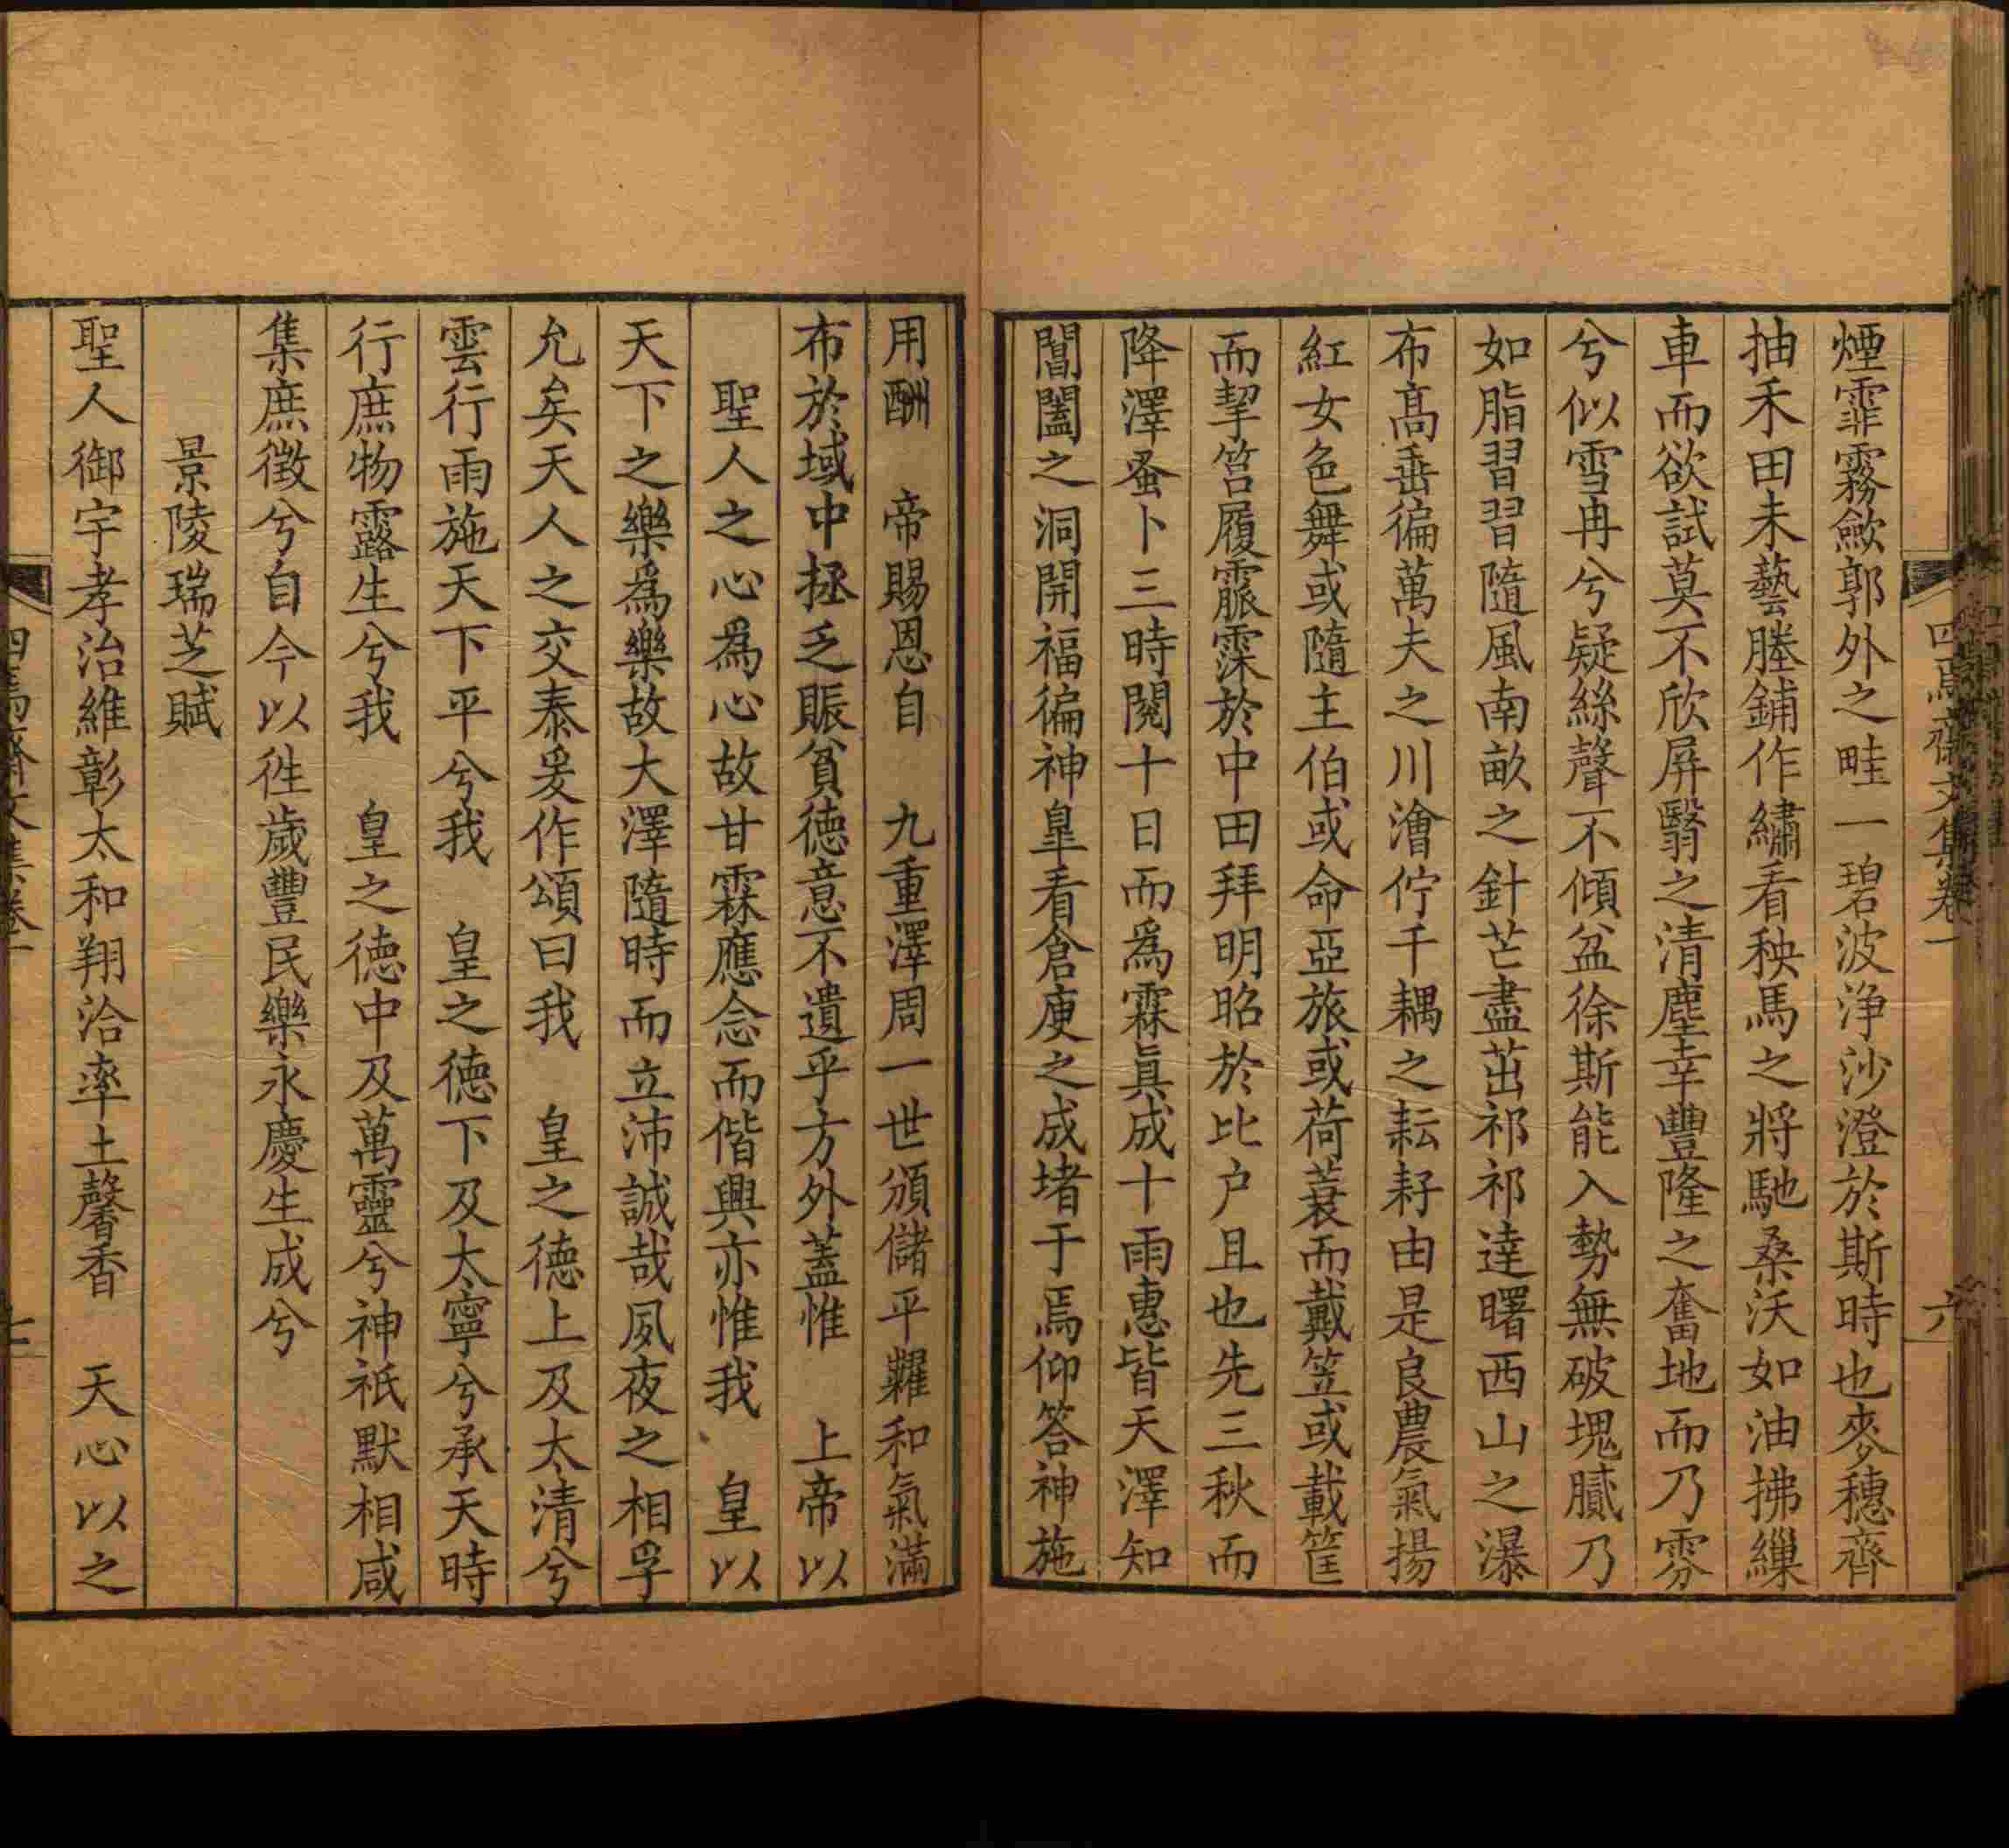 四焉齋文集卷一 六
煙霏霧歛郭外之畦一碧波浄沙澄於斯時也麥穗齊
抽禾田未藝塍鋪作繡看秧馬之將馳桑沃如油拂繅
車而欲試莫不欣屏翳之清塵幸豐隆之奮地而乃雰
兮似雪冉兮疑絲聲不傾盆徐斯能入勢無破塊膩乃
如脂習習隨風南畝之針芒盡茁祁祁達曙西山之瀑
布高垂徧萬夫之川澮佇千耦之耘耔由是良農氣揚
紅女色舞或隨主伯或命亞旅或荷蓑而戴笠或載筐
而挈筥履霢霂於中田拜明昭於比户且也先三秋而
降澤蚤卜三時閱十日而爲霖眞成十雨惠皆天澤知
閶闔之洞開福徧神臯看倉庾之成堵于焉仰答神施
用酬　帝賜恩自　九重澤周一世頒儲平糶和氣滿
布於域中拯乏賑貧徳意不遺乎方外蓋惟　上帝以
聖人之心爲心故甘霖應念而偕興亦惟我　皇以
天下之樂爲樂故大澤隨時而立沛誠哉夙夜之相孚
允矣天人之交泰爰作頌曰我　皇之徳上及太清兮
雲行雨施天下平兮我　皇之徳下及太寧兮承天時
行庶物露生兮我　皇之徳中及萬靈兮神祇默相咸
集庶徴兮自今以徃歲豐民樂永慶生成兮
景陵瑞芝賦
聖人御宇孝治維彰太和翔洽率土馨香　天心以之
四焉齋文集卷一 七